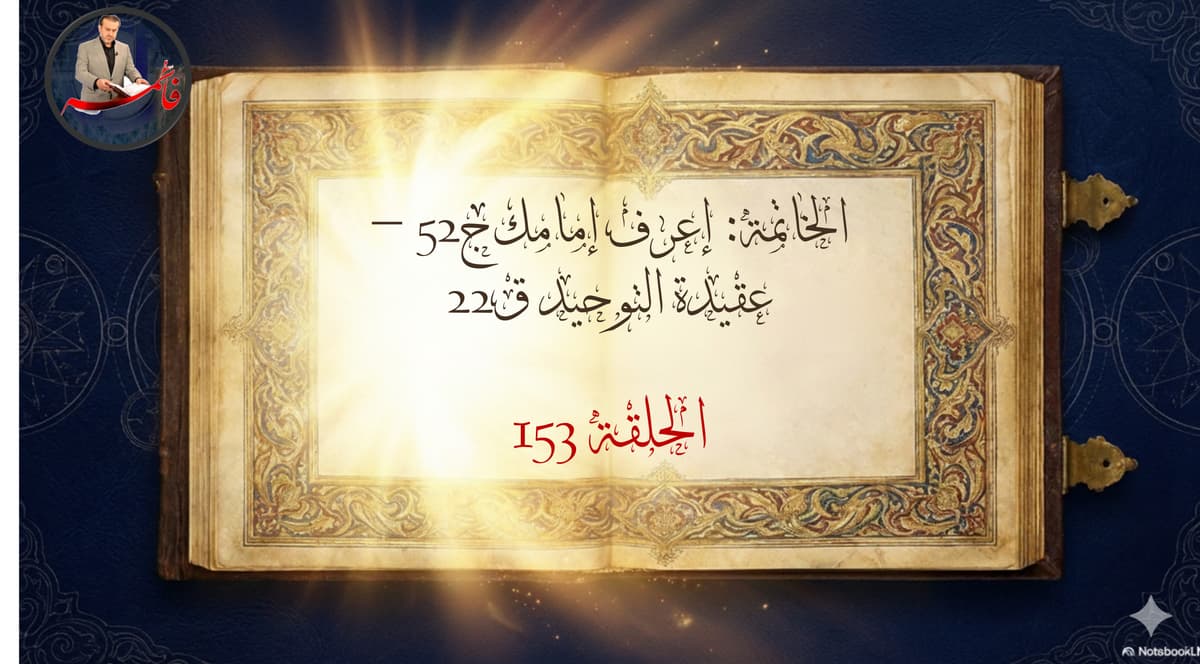 فاطمة
الخاتمة: إعرف إمامك ج52 –
عقيدة التوحيد ق22
الحلقة 153
NotsbookLM